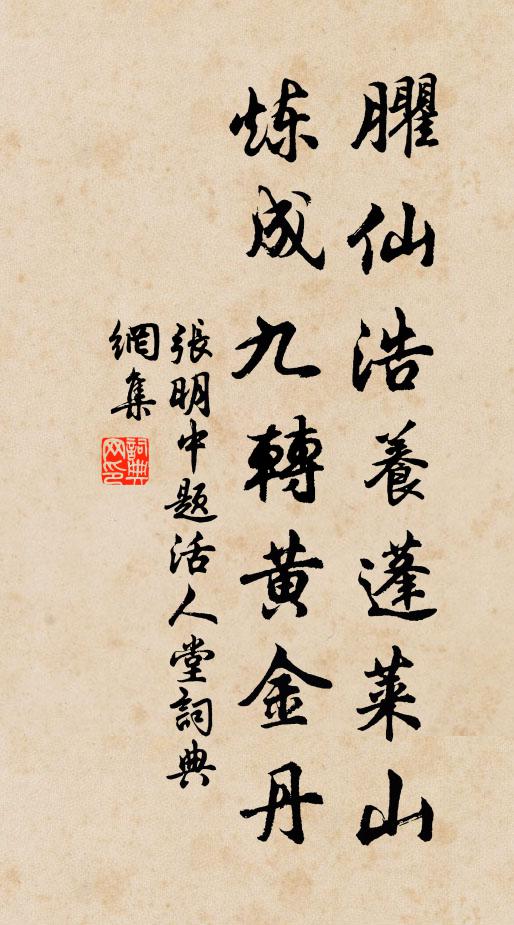 臞仙浩養蓬萊山
炼成九轉黄金丹
張明中题活人堂詞典
網集
詞典网印